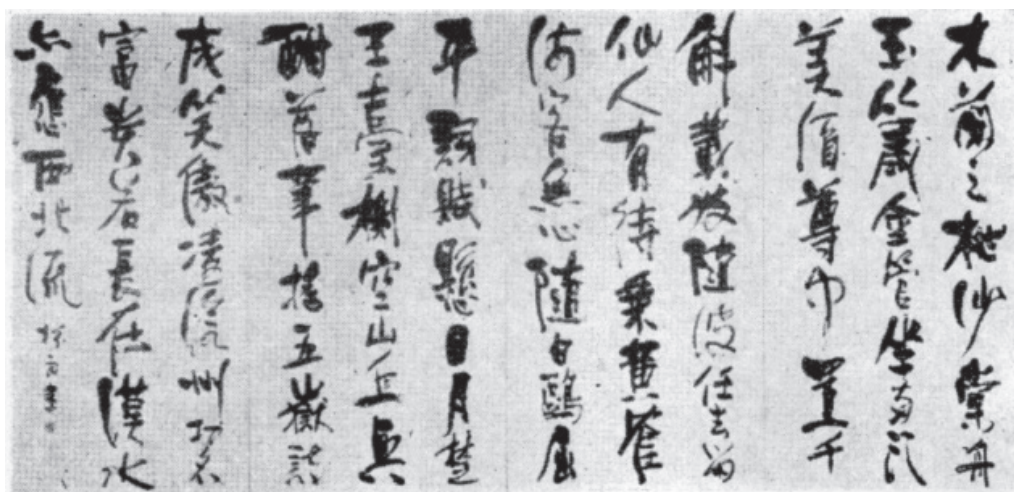 木蘭之枻沙棠舟
玉簫金管坐兩頭
美酒尊中置千
斛載妓隨波任去留
仙人有待乘黃鶴
海客無心隨白鷗屈
平詞賦懸日月楚
王臺榭空山丘興
酣落筆搖五嶽詩
成笑傲凌滄州功名
富貴若長在漢水
亦應西北流